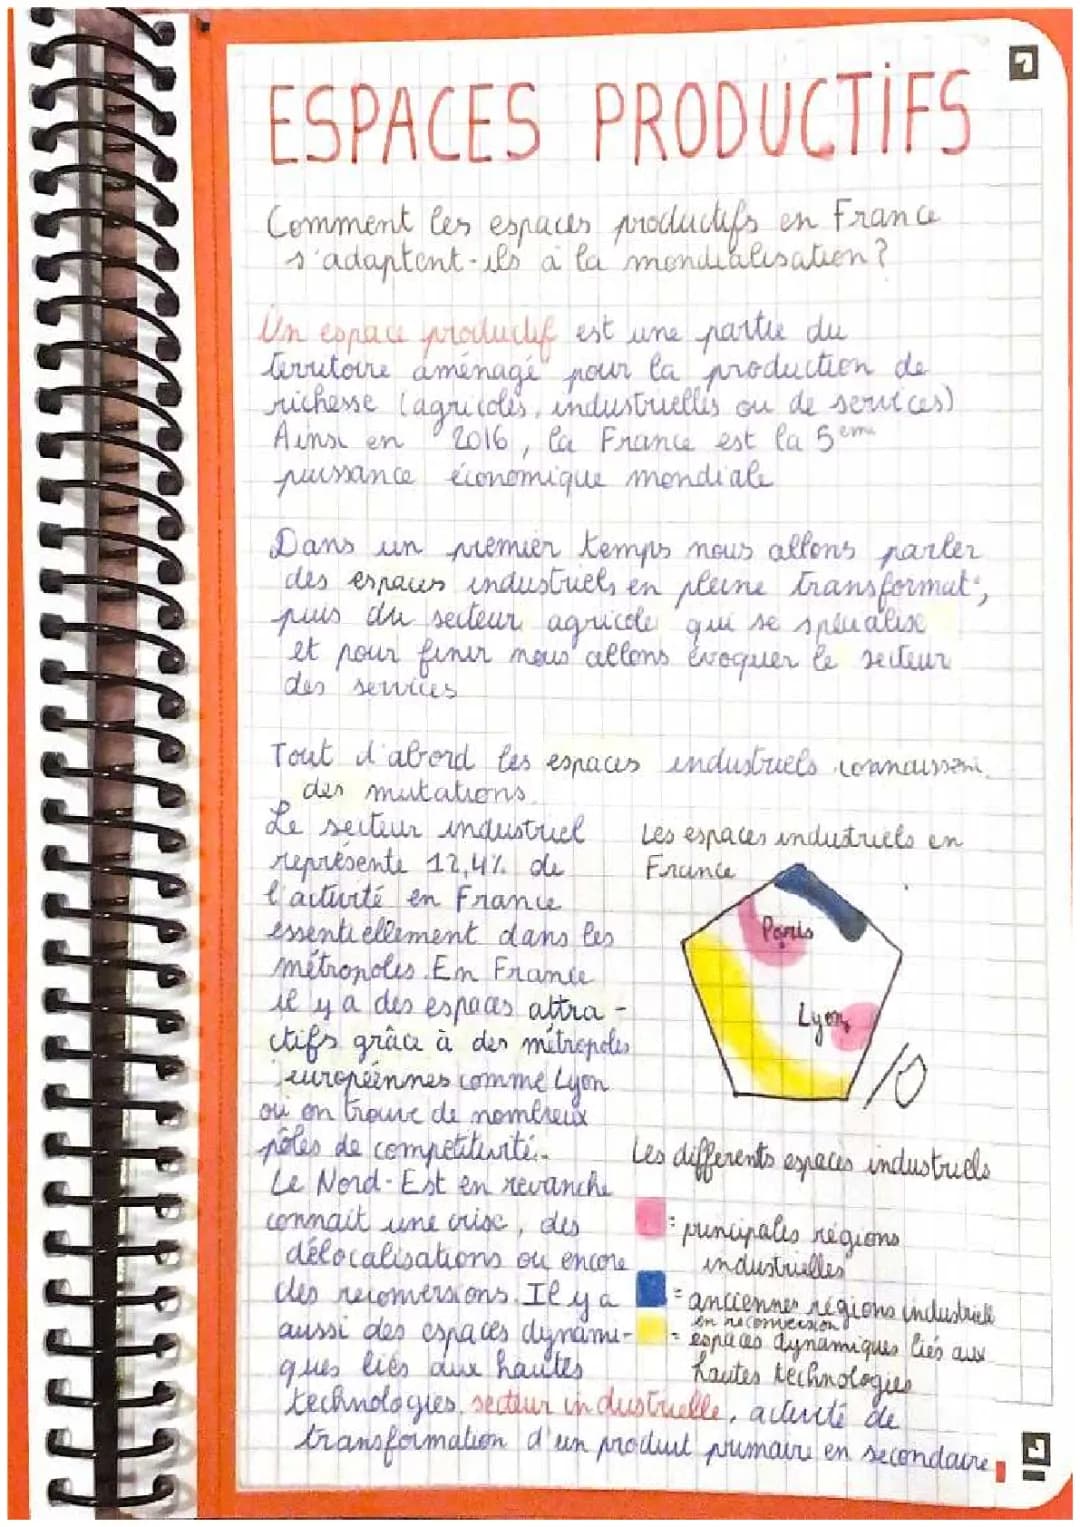 ESPACES PRODUCTIFS
Comment les espaces productifs en France
s'adaptent-ils à la mondialisation?
Un espace productif est une partie du
territoire aménagé pour la production de
richesse (agricoles, industrielles ou de services)
Ainsi en 2016, la France est la 5ème
puissance économique mondiale
Dans un premier temps nous allons parler
des espaces industriels en pleine transformat°,
puis du secteur agricole qui se spécialise
et pour finir nous allons évoquer le secteur
des services
Tout d'abord les espaces industriels connaissent
des mutations.
Le secteur industriel
représente 12,4% de
l'activité en France
essentiellement dans les
métropoles. En France
il y a des espaces attra-
ctifs grâce à des métropoles
européennes comme Lyon
où on trouve de nombreux
pôles de compétitivité.
Le Nord-Est en revanche
connait une crise, des
délocalisations ou encore
des reconversions. Il y a
aussi des espaces dynami-
ques liés aux hautes
technologies. secteur industrielle, activité de
transformation d'un produit primaire en secondaire
Les espaces industriels en
France
Paris
Lyon
10
Les differents espaces industriels
= principales régions
industrielles
= anciennes régions industriell
en reconversion
= espaces dynamiques liés aux
hautes technologies